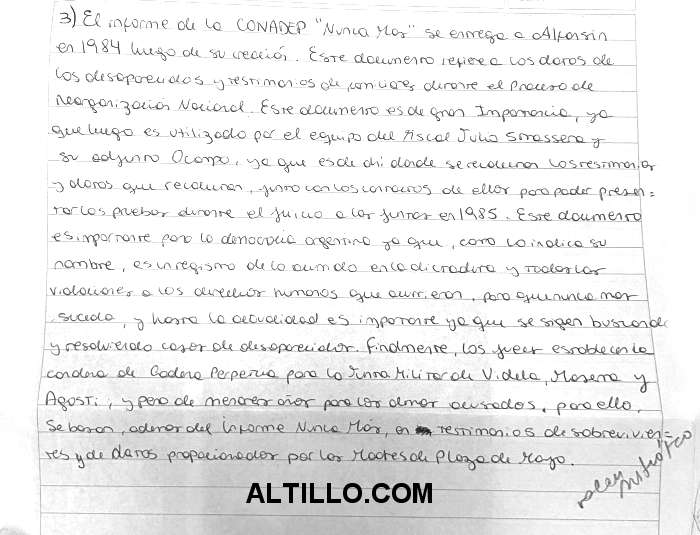 3) El informe de la CONADEP "Nunca Mas" se entrega a Alfonsín
en 1984 luego de su creación. Este documento refiere a los datos de
los desaparecidos y testimonios de familiares durante el Proceso de
Reorganización Nacional. Este documento es de gran Importancia, ya
que luego es utilizado por el equipo del fiscal Julio Strassera y
su adjunto Ocampo, ya que es de ahí donde se recaudan los testimonios
y datos que recaudan, junto con los contactos de ellos para poder presen=
tar las pruebas durante el Juicio a las Juntas en 1985. Este documento
es importante para la democracia argentina ya que, como lo indica su
nombre, es un registro de lo ocurrido en la dictadura y Todas las
violaciones a los derechos humanos que ocurrieron, para que nunca mas
suceda, y hasta la actualidad es importante ya que se siguen buscando
y resolviendo casos de desaparecidos. Finalmente, los jueces establecen la
condena de Cadena Perpetua para la Junta Militar de Videla, Massera y
Agosti, y pena de menores años para los demas acusados, para ello,
se basan, ademas del Informe Nunca Más, en testimonios de sobrevivien=
tes y de datos proporcionados por las Madres de Plaza de Mayo.
ALTILLO.COM